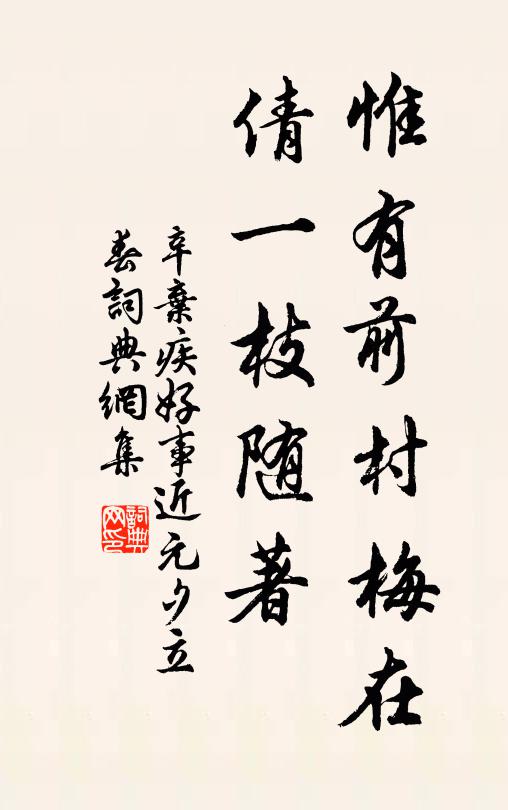 惟有前村梅在
倩一枝随著
辛棄疾好事近元夕立
春詞典網集
詞典网印